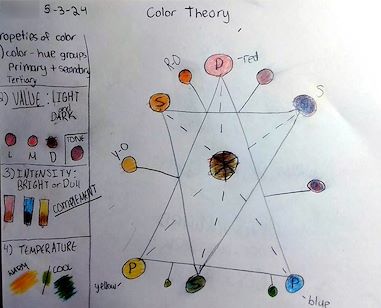 5-3-24
Color Theory
ropeties of color
) color - hue groups
primary + secondary
Tertiary
2) VALUE: LIGHT
DARK
L M D TONE
3) INTENSITY:
BRIGHT or Dull
COMPLEMENT
4) TEMPERATURE
WARM COOL
R-O
P
-red
S
S
y-O
P
yellow-
P
-blue